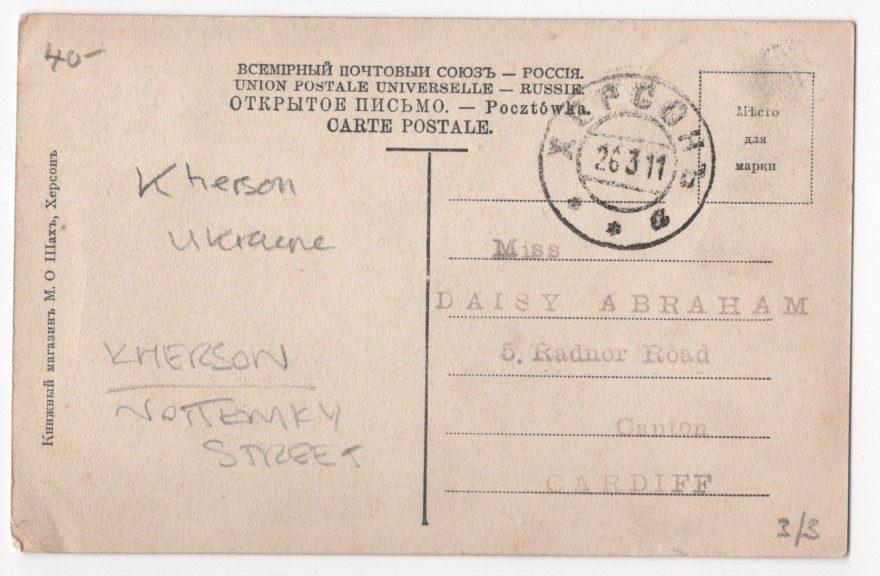 40-
ВСЕМІРНЫЙ ПОЧТОВЫЙ СОЮЗЪ — РОССІЯ.
UNION POSTALE UNIVERSELLE — RUSSIE.
ОТКРЫТОЕ ПИСЬМО. — Pocztówka.
CARTE POSTALE.
ХЕРСОНЪ
26 3 11
* * а
Мѣсто
для
марки
Книжный магазинъ М. О Шахъ, Херсонъ
Kherson
Ukraine
KHERSON
NOTTEMKY
STREET
Miss
DAISY ABRAHAM
5. Radnor Road
Canton
CARDIFF
3/3